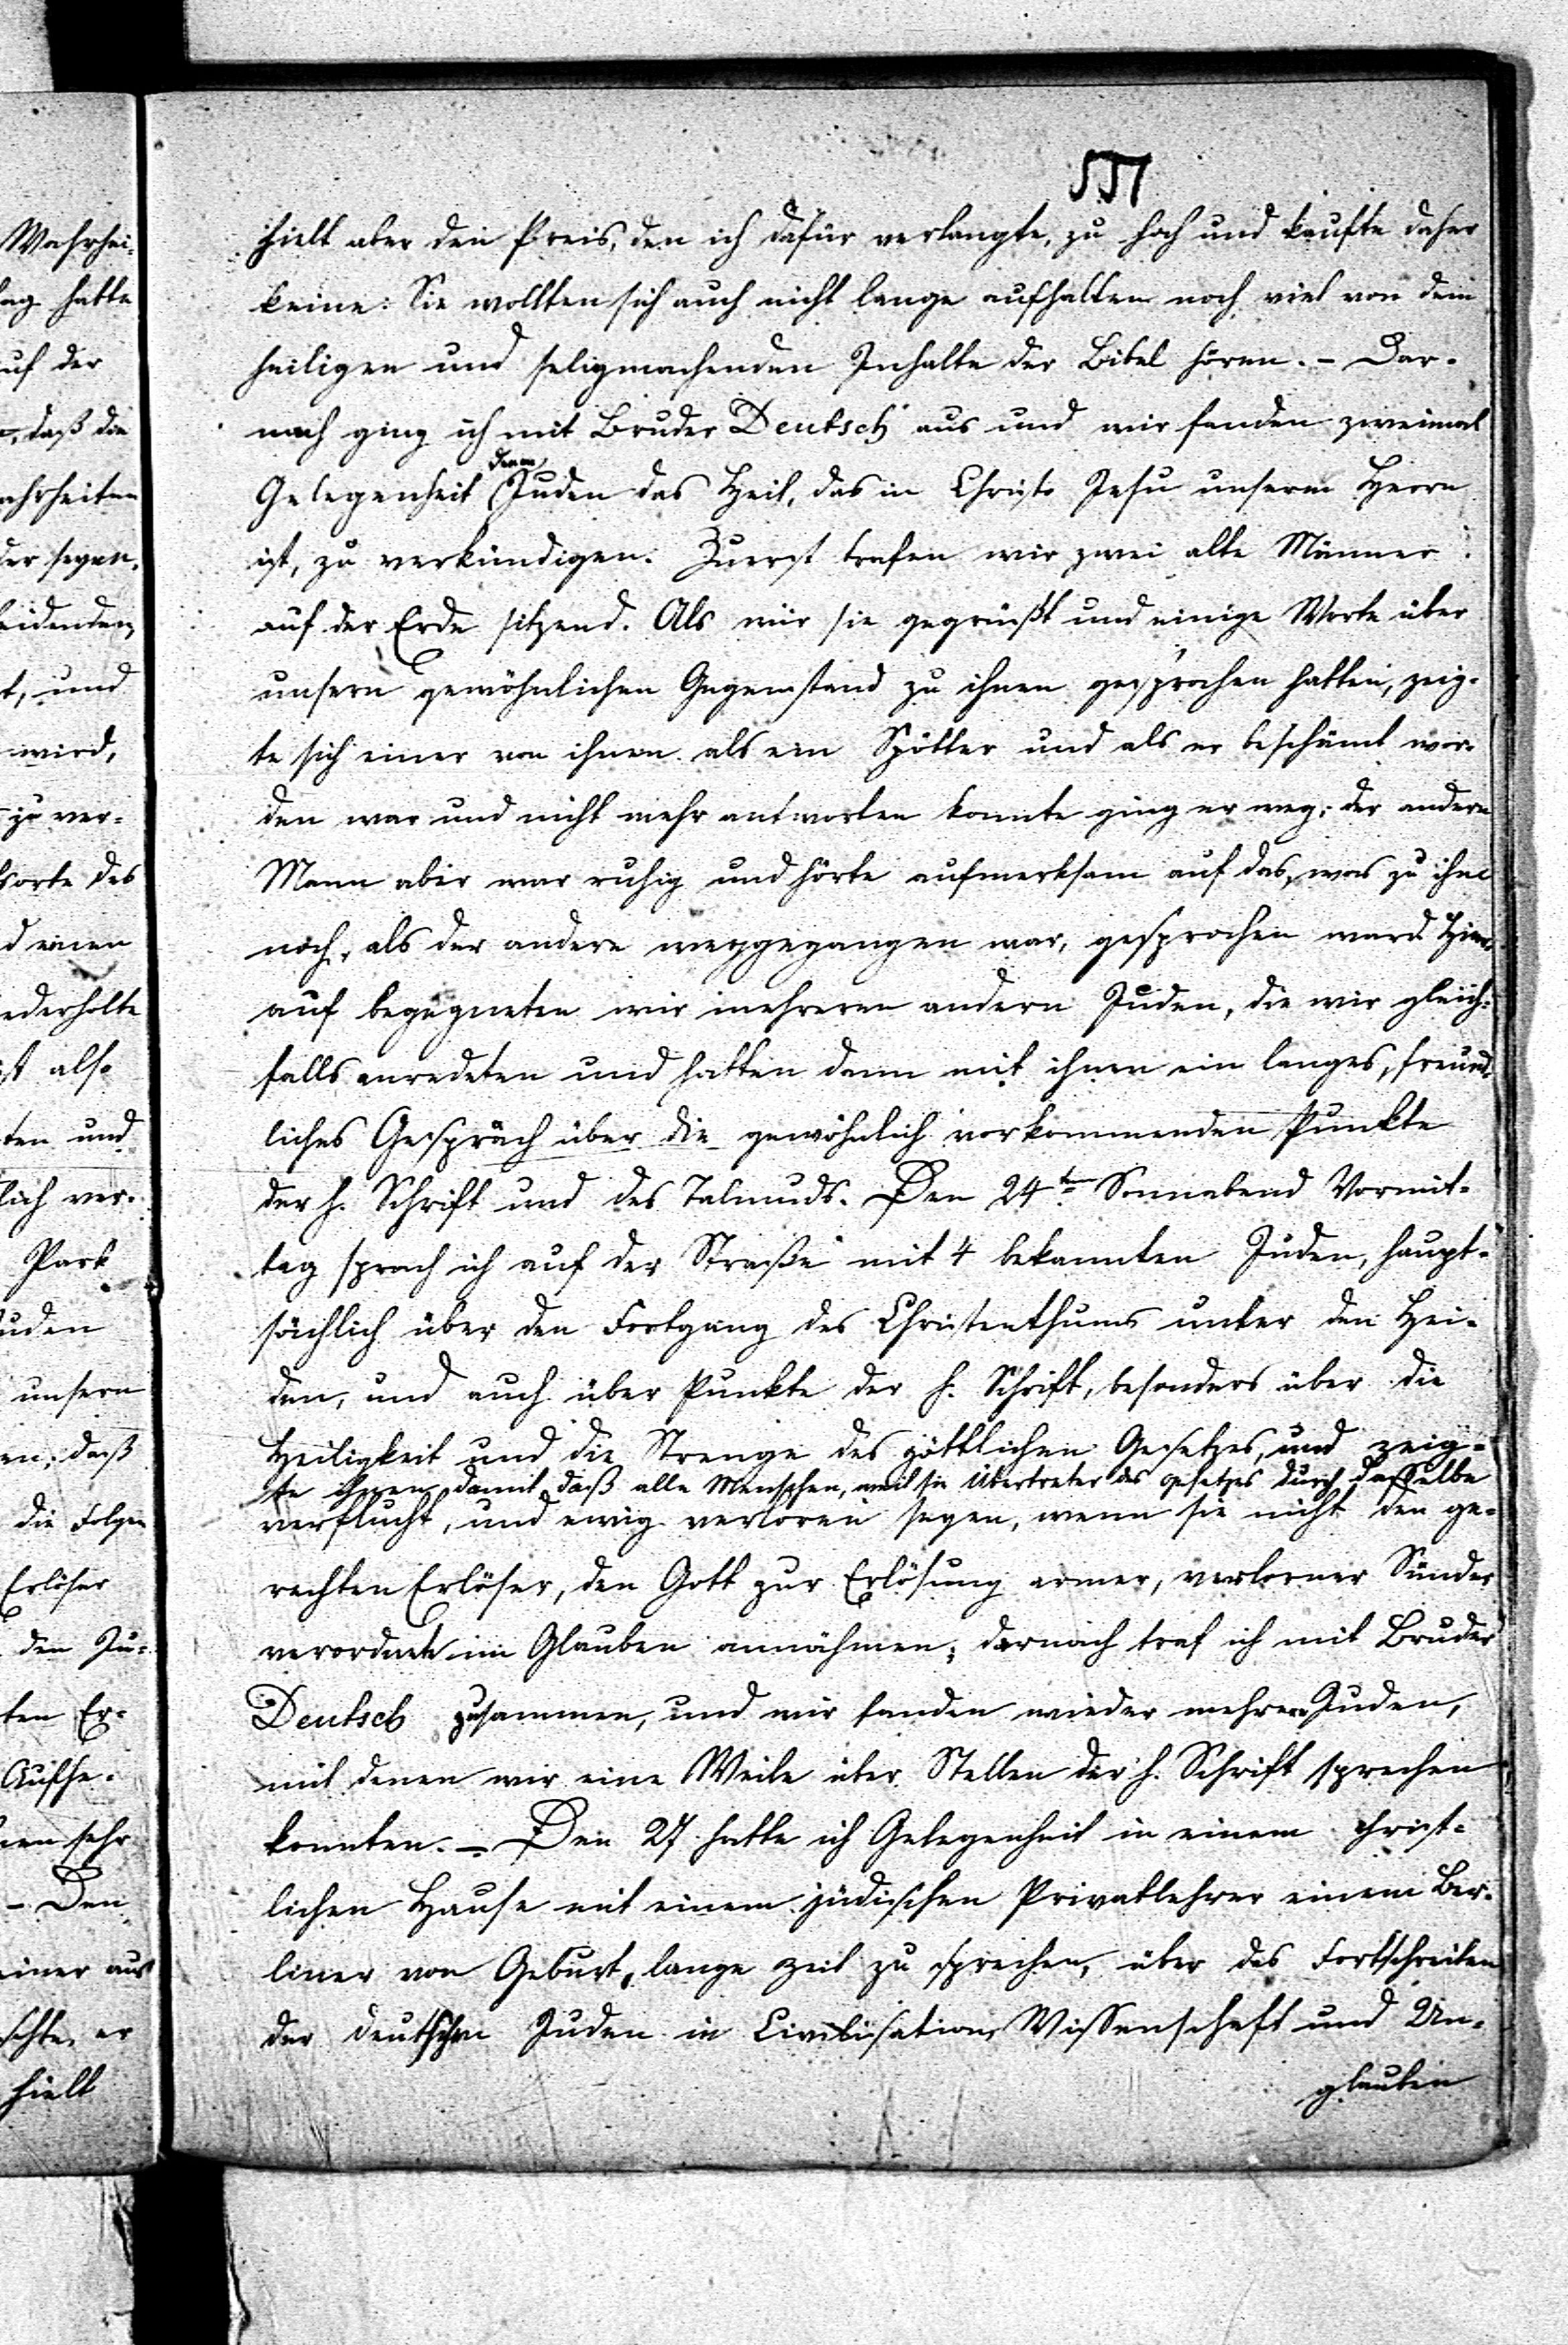 557
hielt aber den Preis, den ich dafür verlangte, zu hoch und kaufte daher
keine: Sie wollten sich auch nicht lange aufhalten noch viel von dem
heiligen und seligmachenden Inhalte der Bibel hören. – Dar-
nach ging ich mit Bruder Deutsch aus und wir fanden zweimal
Gelegenheit denen Juden das Heil, das in Christo Jesu unserm Herrn
ist, zu verkündigen. Zuerst trafen wir zwei alte Männer
auf der Erde sitzend. Als wir sie gegrüßt und einige Worte über
unsern gewöhnlichen Gegenstand zu ihnen gesprochen hatten, zeig-
te sich einer von ihnen als ein Spötter und als er beschämt wor-
den war und nicht mehr antworten konnte ging er weg; der andere
Mann aber war ruhig und hörte aufmerksam auf das, was zu ihm
noch, als der andere weggegangen war, gesprochen ward. Hier-
auf begegneten wir mehreren andern Juden, die wir gleich-
falls anredeten und hatten dann mit ihnen ein langes, freund-
liches Gespräch über die gewöhnlich vorkommenden Punkte
der h. Schrift und des Talmuds. Den 24ten Sonnabend Vormit-
tag sprach ich auf der Straße mit 4 bekannten Juden, haupt-
sächlich über den Fortgang des Christenthums unter den Hei-
den, und auch über Punkte der h. Schrift, besonders über die
Heiligkeit und die Strenge des göttlichen Gesetzes, und zeig-
te ihnen damit daß alle Menschen, weil sie Übertreter des Gesetzes durch dasselbe
verflucht, und ewig verloren seyen, wenn sie nicht den ge-
rechten Erlöser, den Gott zur Erlösung armer, verlorner Sünder
verordnete im Glauben annähmen; darnach traf ich mit Bruder
Deutsch zusammen, und wir fanden wieder mehrere Juden,
mit denen wir eine Weile über Stellen der h. Schrift sprechen
konnten. – Den 27 hatte ich Gelegenheit in einem christ-
lichen Hause mit einem jüdischen Privatlehrer einem Ber-
liner von Geburt, lange Zeit zu sprechen, über das Fortschreiten
der deutschen Juden in Civilisation, Wissenschaft und Un-
glauben